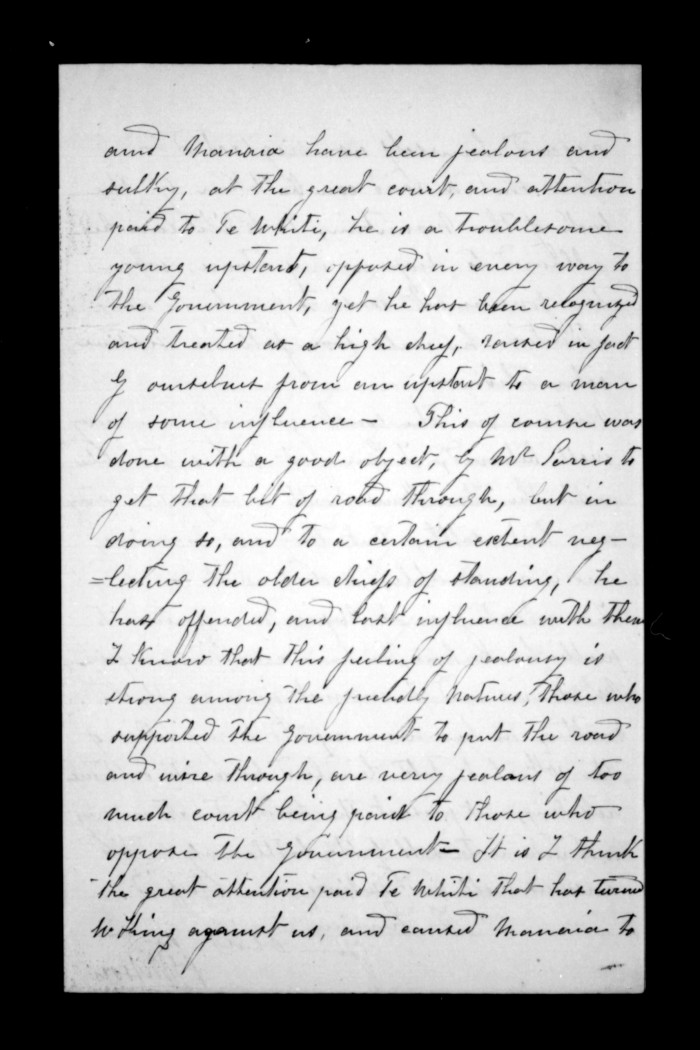 and Manaia have been jealous and
sulky, at the great court, and attention
paid to Te Whiti, he is a troublesome
young upstart, opposed in every way to
the Government, yet he has been recognized
and treated as a high chief, raised in fact
by ourselves from an upstart to a man
of some influence - This of course was
done with a good object, by Mr Parris to
get that bit of road through, but in
doing so, and to a certain extent neg-
=lecting the older chiefs of standing, he
has offended, and lost influence with them
I know that this feeling of jealousy is
strong among the friendly Natives, those who
supported the Government to put the road
and wire through, are very jealous of too
much court being paid to those who
oppose the Government - It is I think
the great attention paid Te Whiti that has turned
W King against us, and caused Manaia to